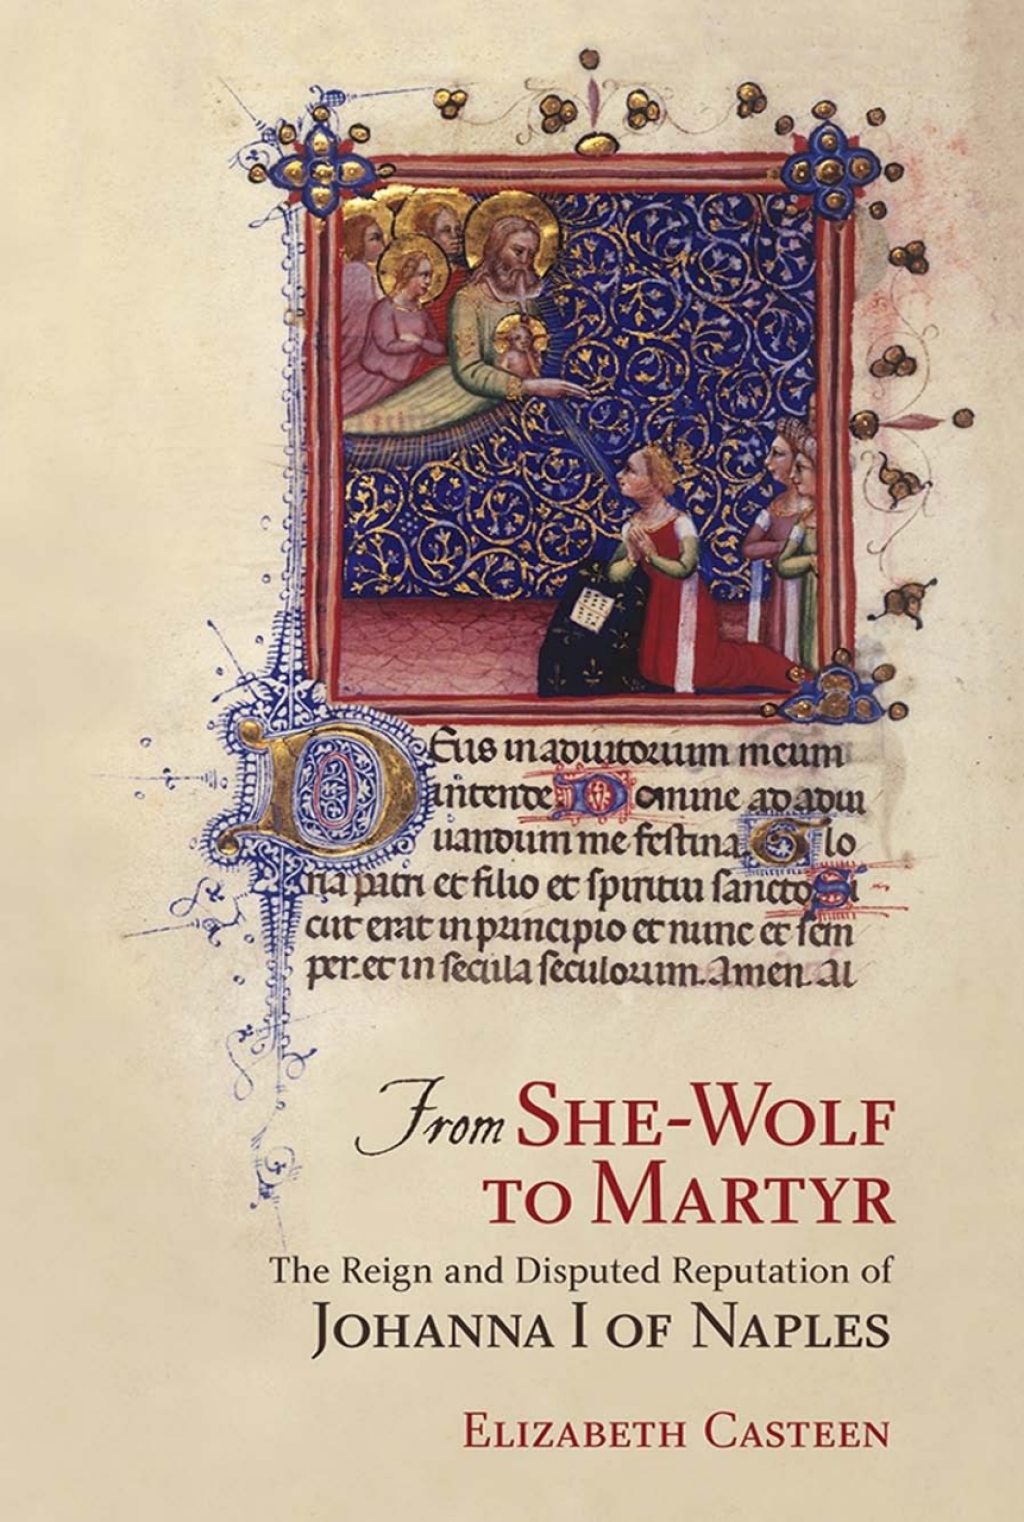 Deus in adiutorium meum
intende Domine ad adiu
uandum me festina. Glo
ria patri et filio et spiritui sancto Si
cut erat in principio et nunc et sem
per. et in secula seculorum. Amen. Al
From SHE-WOLF
TO MARTYR
The Reign and Disputed Reputation of
JOHANNA I OF NAPLES
ELIZABETH CASTEEN